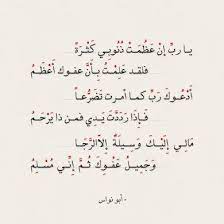 يا ربِّ إن عَظُمَتْ ذُنُوبِي كَثْرَةً
فلقد عَلِمْتُ بِأَنَّ عفوك أَعْظَمُ
أَدْعُوكَ رَبِّ كما أمرت تَضَرُّعاً
فَإِذَا رَدَدْتَ يَدِي فمن ذا يَرْحَمُ
مَالِي إِلَيْكَ وَسِيلَةٌ إِلَّا الرَّجَا
وَجَمِيلُ عَفْوِكَ ثُمَّ إِنِّي مُسْلِمُ
- أبو نواس